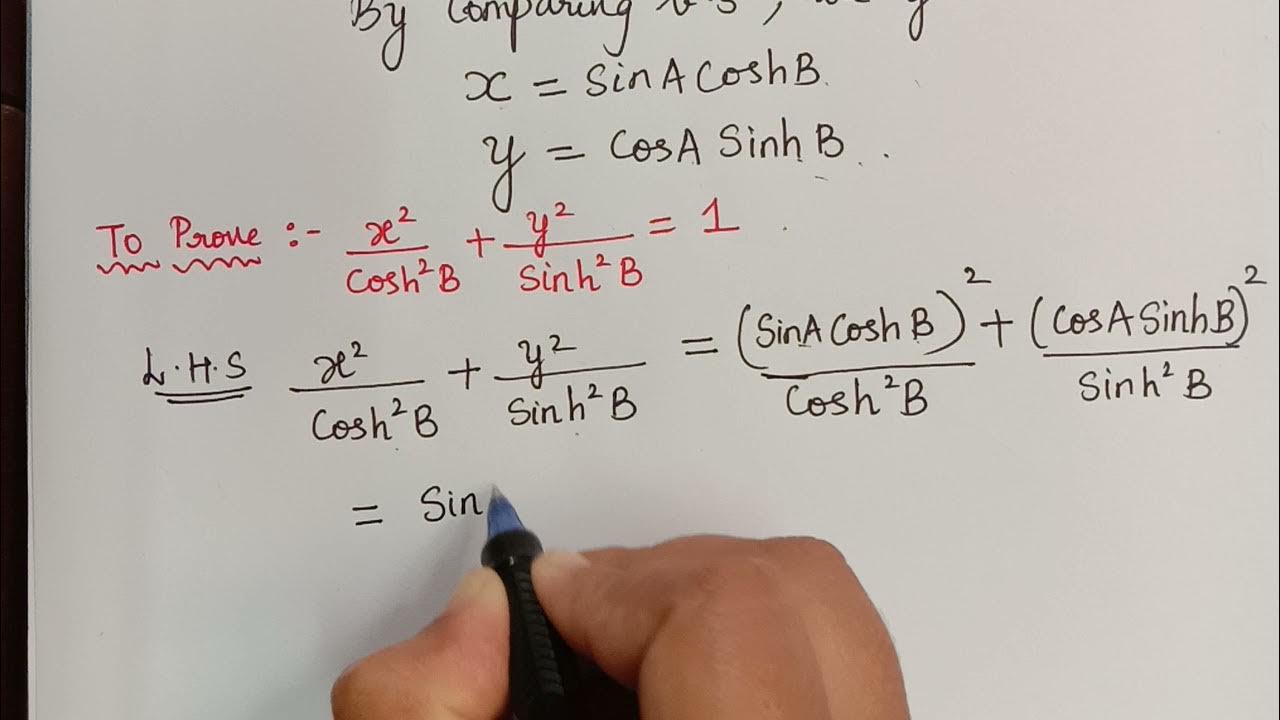 By Comparing
x = SinA CoshB.
y = CosA SinhB.
To Prove :- x²/Cosh²B + y²/Sinh²B = 1
L.H.S x²/Cosh²B + y²/Sinh²B = (SinA CoshB)²/Cosh²B + (CosA SinhB)²/Sinh²B
= Sin